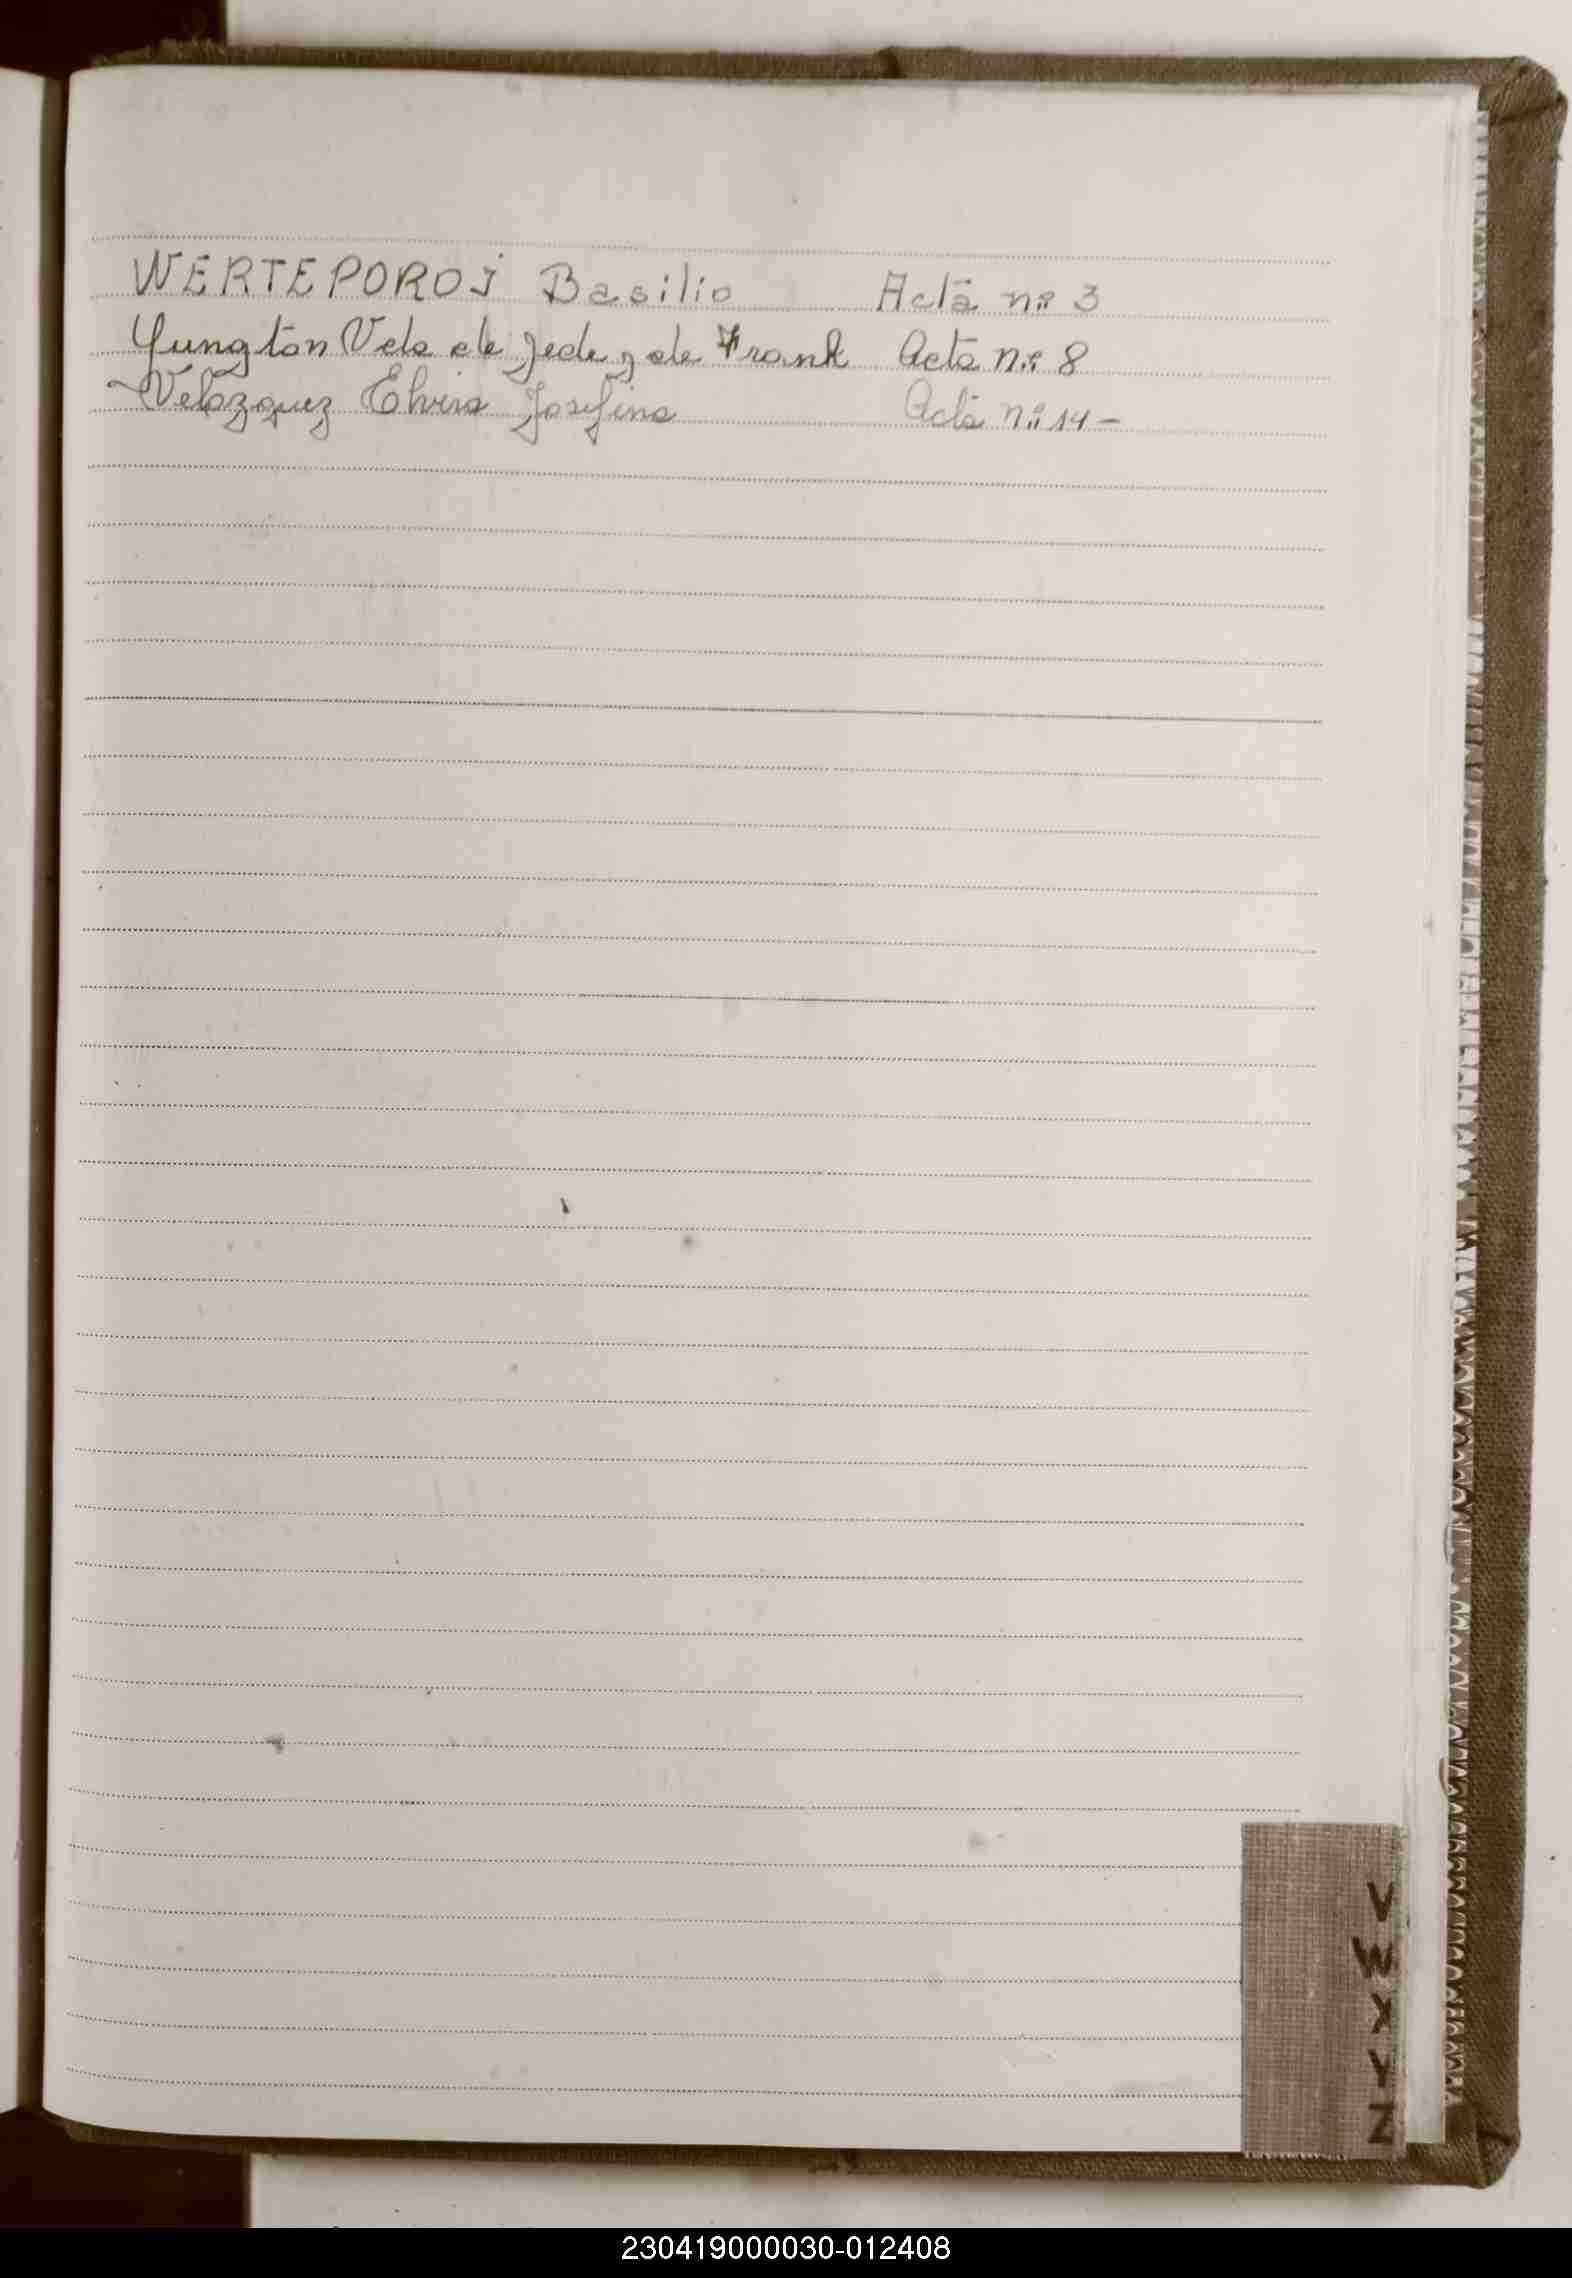 WERTEPOROJ Basilio Acta nº 3
Yungtón Vda de Jede y de Frank Acta nº 8
Velazquez Elvira Josefina Acta nº 14 -
V
W
X
Y
Z
230419000030-012408